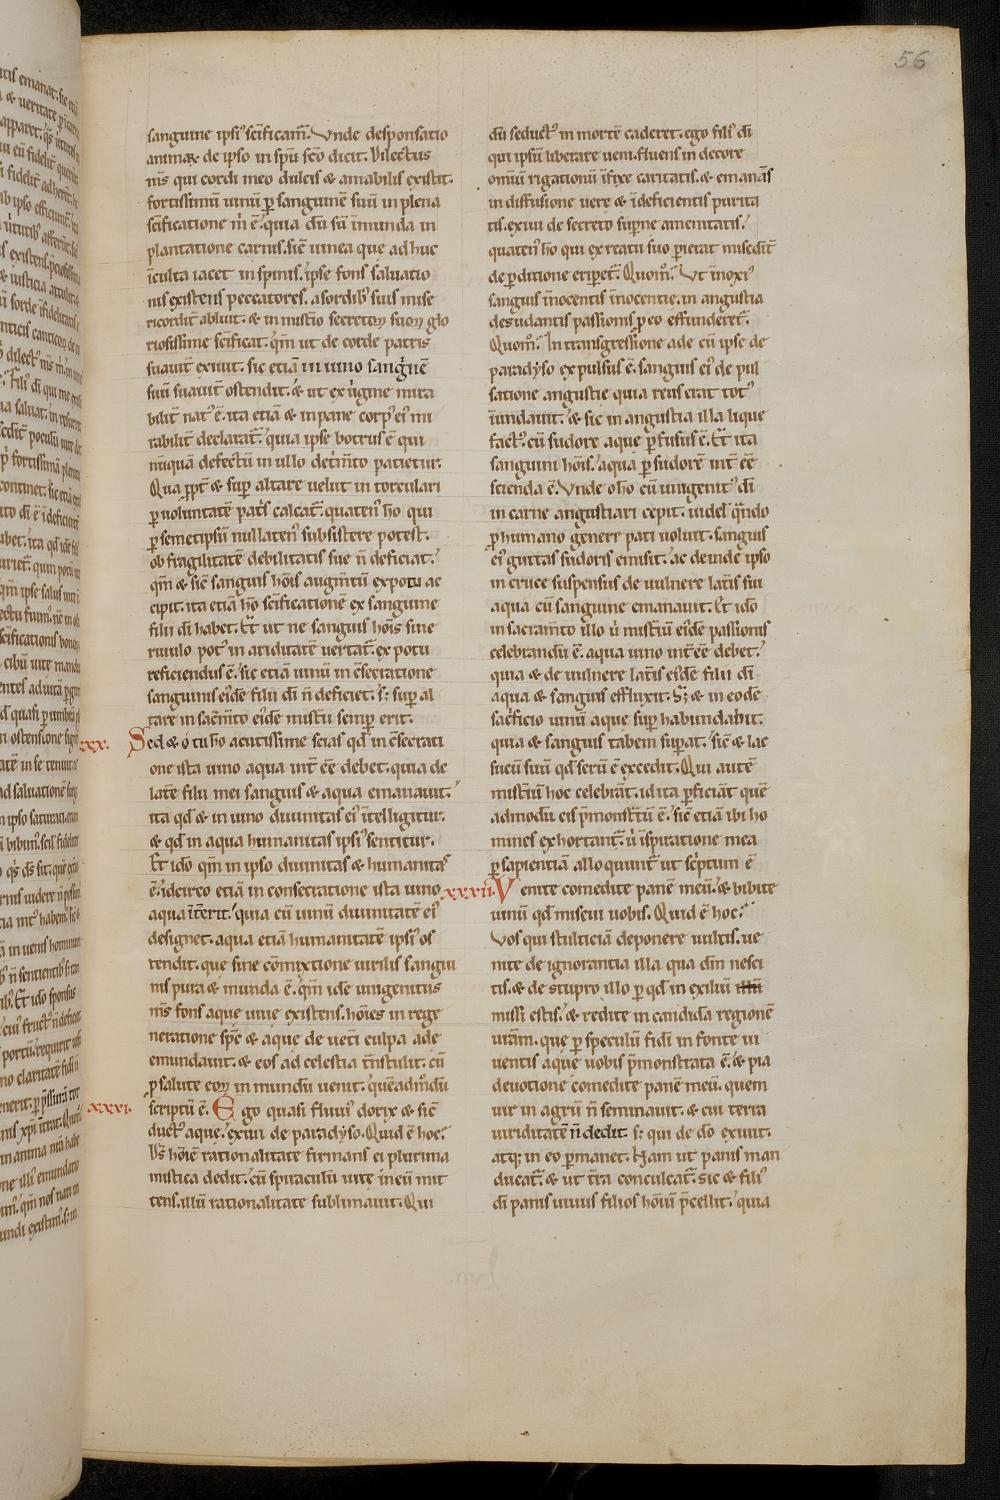 56
sanguine ipsi᷒ scīficam̄. Vnde desponsatio
animaꝝ de ipso in spū scō dicit. Dilectus
m̄s qui cordi meo dulcis & amabilis existit.
fortissimū uinū ꝑ sanguinē suū in plena
scīficatione m̄ ē. quia dū sū īmunda in
plantatione carnis. sic̄ uinea que adhuc
īculta iacet in spinis. ipse fons saluatio
nis existens peccatores. a sordib᷒ suis mise
ricordit̄ abluit. & in mist̄io secretoꝝ suoꝝ glo
riosissime scīficat. qm̄ ut de corde patris
suauit̄ exiuit. sic etiā in uino sanguinē
suū suauit̄ ostendit. & ut ex ūgine mira
bilit̄ nat᷒ ē. ita etiā & in pane corp᷒ ei᷒ mi
rabilit̄ declarat̄. quia ipse botrus ē qui
nūquā defectū in ullo det̄m̄to patietur.
Qua ꝓpt̄ & suꝑ altare uelut in torculari
ꝑ uoluntatē pat̄s calcat̄. quaten᷒ ho qui
ꝑ semetipsū nullaten᷒ subsistere potest.
ob fragilitatē debilitatis sue n̄ deficiat.
qm̄ & sic̄ sanguis hōis augm̄tū ex potu ac
cipit. ita etiā hō scīficationē ex sanguine
filii dī habet. Et ut ne sanguis hōis sine
riuulo pot᷒ in ariditatē uertat̄. ex potu
reficiendus ē. sic etiā uinū in c̄secratione
sanguinis ei᷒dē filii dī n̄ deficiet. s; suꝑ al
tare in sac̄m̄to ei᷒dē mist̄ii semꝑ erit.
xxx. Sed & o tu hō acutissime scias qd̄ in c̄secrati
one ista uino aqua int̄ eē debet. quia de
lat̄e filii mei sanguis & aqua emanauit.
ita qd̄ & in uino diuinitas ei᷒ ītelligitur.
& qd̄ in aqua humanitas ipsi᷒ sentitur.
Et idō qm̄ in ipso diuinitas & humanitas
ē. idcirco etiā in consecratione ista uino
aqua īt̄erit. quia cū uinū diuinitatē ei᷒
designet. aqua etiā humanitatē ipsi᷒ os
tendit. que sine cōmixtione uirilis sangui
nis pura & munda ē. qm̄ ide unigenitus
m̄s fons aque uiue existens. hōies in rege
neratione sp̄c & aque de uet̄i culpa ade
emundauit. & eos ad celestia t̄nstulit. cū
ꝑ salute eoꝝ in mundū uenit. quēadm̄dū
xxxi. scriptū ē. Ego quasi fluui᷒ dorix & sic̄
duct᷒ aque. exiui de paradyso. Quid ē hoc.
Ds̄ hōiē rationalitate firmans ei plurima
mistica dedit. cū spiraculū uite ī eū mit
tens. illū rationalitate sublimauit. Qui
dū seduct᷒ in mortē caderet. ego fili᷒ dī
qui ipsū liberare ueni. fluens in decore
omniū rigationū īfixe caritatis. & emanās
in diffusione uere & īdeficientis purita
tis. exiui de secreto suꝑne amenitatis.
quaten᷒ ho qui ex reatu suo ꝑierat misedit̄
de ꝑditione eriꝑet̄. Quom̄. Vt īnoxi᷒
sanguis īnocentis īnocentie. in angustia
desudantis passionis ꝑ eo effunderet̄.
Quom̄. In transgressione ade cū ipse de
paradyso expulsus ē. sanguis ei᷒ de pul
satione angustie quia reus erat tot᷒
īundauit. & sic in angustia illa lique
fact᷒. cū sudore aque ꝑfusus ē. Et ita
sanguini hōis. aqua ꝑ sudorē int̄ eē
scienda ē. Vnde o hō cū unigenit᷒ dī
in carne angustiari cepit. uidel quindo
ꝑ humano genere pati uoluit. sanguis
ei᷒ guttas sudoris emisit. ac deinde ipso
in cruce suspensus de uulnere lat̄is sui
aqua cū sanguine emanauit. Et idō
in sacram̄to illo ū mist̄iū ei᷒dē passionis
celebrandū ē. aqua uino int̄ eē debet.
quia & de uulnere lat̄is ei᷒dē filii dī
aqua & sanguis effluxit. S; & in eodē
sac̄ficio uinū aque suꝑhabundabit.
quia & sanguis tabem suꝑat. sic̄ & lac
sucū suū qd̄ serū ē excedit. Qui autē
mist̄iū hoc celebrāt. id ita ꝑficiāt quē
admodū eis p̄monst̄tū ē. sic etiā ibi ho
mines exhortant̄. ū īspiratione mea
ꝑ sapientiā alloquunt̄ ut sc̄ptum ē
xxxii. Venite comedite panē meū. & bibite
uinū qd̄ miscui uobis. Quid ē hoc.
Vos qui stulticiā deponere uultis. ue
nite de ignorantia illa qua dn̄m nesci
tis. & de stupro illo ꝑ qd̄ in exiliū
missi estis. & redite in candidā regionē
uiām. que ꝑ speculū fidī in fonte ui
uentis aque uobis p̄monstrata ē. & pia
deuotione comedite panē meū. quem
uir in agrū n̄ seminauit. & cui terra
uiriditatē n̄ dedit. s; qui de dō exiuit.
atq; in eo ꝑmanet. Nam ut panis man
ducat̄. & ut t̄ra conculcat̄. sic & fili᷒
dī panis uiuus filios hōiū p̄cellit. quia